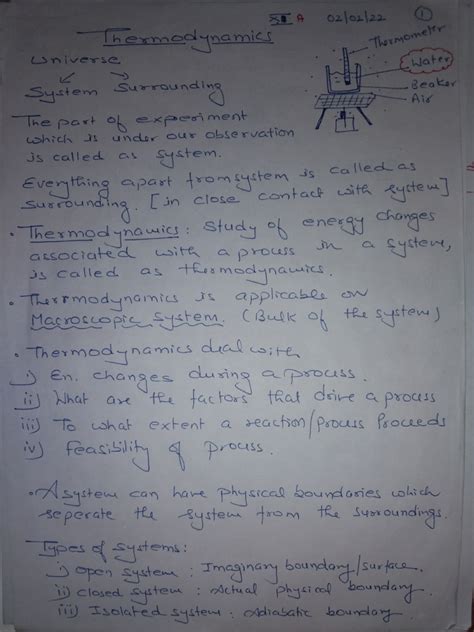 XI A 02/02/22 1
Thermodynamics
Thermometer
Universe
Water
System Surrounding
Beaker
Air
The part of experiment
which is under our observation
is called as system.
Everything apart from system is called as
surrounding. [in close contact with system]
• Thermodynamics: Study of energy changes
associated with a process in a system,
is called as thermodynamics.
• Thermodynamics is applicable on
Macroscopic System. (Bulk of the system)
• Thermodynamics deal with
i) En. changes during a process.
ii) What are the factors that drive a process
iii) To what extent a reaction/process Proceeds
iv) feasibility of process.
• A system can have physical boundaries which
seperate the system from the surroundings.
Types of systems:
i) open system: Imaginary boundary/surface.
ii) closed system: Actual physical boundary.
iii) Isolated system: Adiabatic boundary.